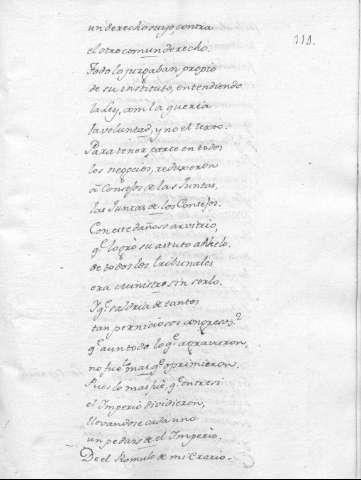 118.
un derecho suyo contra
el otro comun derecho.
Todo lo juzgaban propio
de su instituto, entendiendo
la ley, a mi la queria
la voluntad, y no el texto.
Para tener parte en todos
los negocios, reduxeron
a Consejos de las Juntas,
las Juntas de los Consejos.
Con este dañoso arvitrio,
q.e logrò su astuto anhelo.
de todos los tribunales
era Ministro sin serlo.
Y q.e saldria de tantos
tan perniciosos congresos?
q.e aun todo lo q.e agravaron,
no fue mas q.e oprimieron.
Pues lo mas fue q.e entre si
el Imperio dividieron,
llevandose cada uno
un pedazo de el Imperio.
De el Romulo de mi Erario.